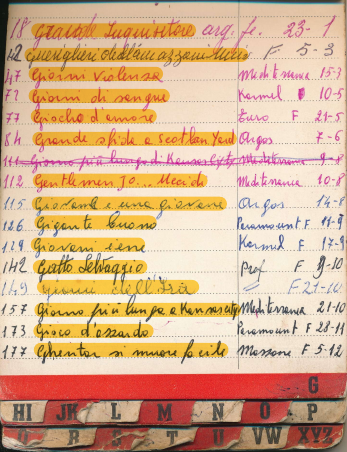 18 Grande Inquisitore arg. fe. 23-1
42 Guerriglieri dell'amazzonia F 5-3
47 Giorni violenza Mediterranea 15-3
72 Giorni di sangue Karmel 10-5
77 Giochi d'amore Euro F 21-5
84 Grande sfida a Scotland Yard Argos 7-6
111 Giorno più lungo di Kansas City Mediterranea 9-8
112 Gentlemen Jo... Uccidi Mediterranea 10-8
115 Giovane e una giovane Argos 14-8
126 Gigante buono Paramount F 11-9
129 Giovani iene Karmel F 17-9
142 Gatto Selvaggio F 9-10
149 giorni dell'Ira F 21-10
157 Giorno più lungo a Kansas City Mediterranea 21-10
173 Gioco d'azzardo Paramount F 28-11
177 Ghentar si muore facile F 5-12
G
HI JK L M N O P
Q R S T U VW XYZ